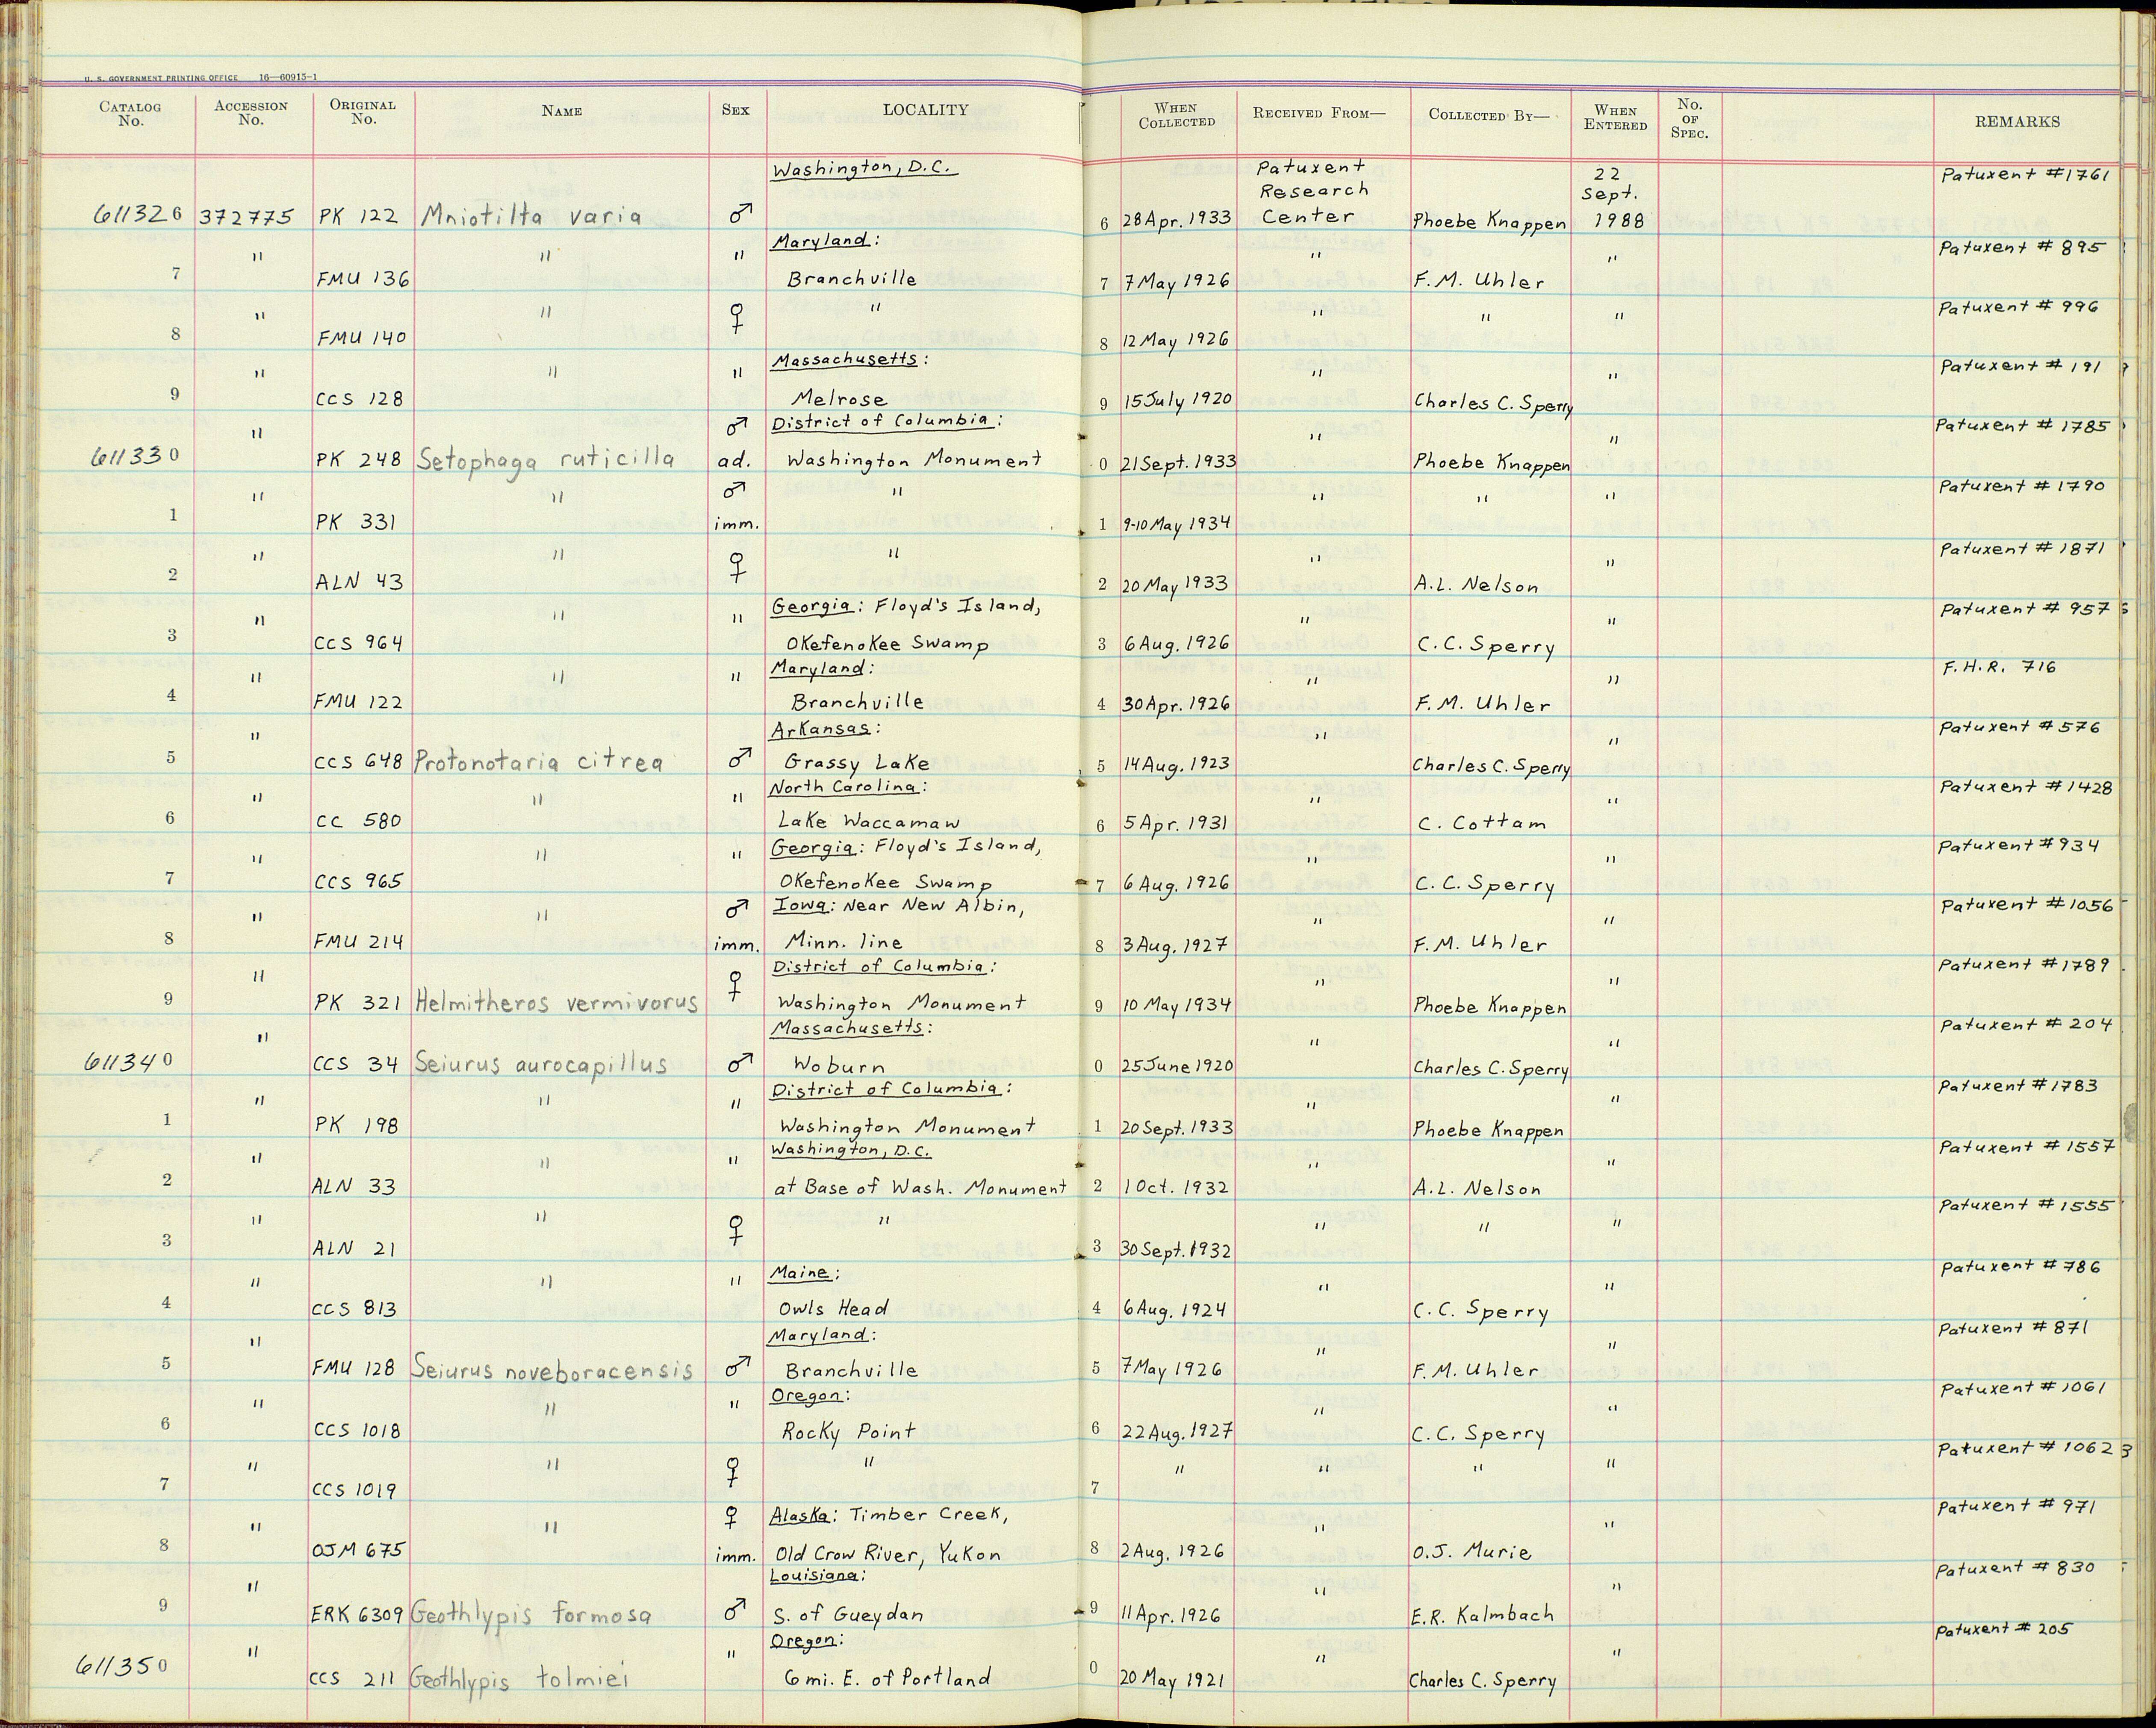 U. S. GOVERNMENT PRINTING OFFICE 16—60915-1
CATALOG No. ACCESSION No. ORIGINAL No. NAME SEX LOCALITY WHEN COLLECTED RECEIVED FROM— COLLECTED BY— WHEN ENTERED No. OF SPEC. REMARKS
Washington, D.C. Patuxent 22 Patuxent #1761
Research Sept.
611326 372775 PK 122 Mniotilta varia ♂ 6 28 Apr. 1933 Center Phoebe Knappen 1988
" " " Maryland: " " Patuxent # 895
7 FMU 136 Branchville 7 7 May 1926 F.M. Uhler
" " ♀ " " " " Patuxent # 996
8 FMU 140 8 12 May 1926
" " " Massachusetts: " " Patuxent # 191
9 CCS 128 Melrose 9 15 July 1920 Charles C. Sperry
" ♂ District of Columbia: " " Patuxent # 1785
611330 PK 248 Setophaga ruticilla ad. Washington Monument 0 21 Sept. 1933 Phoebe Knappen
" " ♂ " " " " Patuxent # 1790
1 PK 331 imm. 1 9-10 May 1934
" " ♀ " " " Patuxent # 1871
2 ALN 43 2 20 May 1933 A.L. Nelson
" " " Georgia: Floyd's Island, " " Patuxent # 957
3 CCS 964 Okefenokee Swamp 3 6 Aug. 1926 C.C. Sperry
" " " Maryland: " " F.H.R. 716
4 FMU 122 Branchville 4 30 Apr. 1926 F.M. Uhler
" Arkansas: " " Patuxent # 576
5 CCS 648 Protonotaria citrea ♂ Grassy Lake 5 14 Aug. 1923 Charles C. Sperry
" " " North Carolina: " " Patuxent #1428
6 CC 580 Lake Waccamaw 6 5 Apr. 1931 C. Cottam
" " " Georgia: Floyd's Island, " " Patuxent # 934
7 CCS 965 Okefenokee Swamp 7 6 Aug. 1926 C.C. Sperry
" " ♂ Iowa: Near New Albin, " " Patuxent #1056
8 FMU 214 imm. Minn. line 8 3 Aug. 1927 F.M. Uhler
" ♀ District of Columbia: " " Patuxent #1789
9 PK 321 Helmitheros vermivorus Washington Monument 9 10 May 1934 Phoebe Knappen
" Massachusetts: " " Patuxent # 204
611340 CCS 34 Seiurus aurocapillus ♂ Woburn 0 25 June 1920 Charles C. Sperry
" " " District of Columbia: " " Patuxent # 1783
1 PK 198 Washington Monument 1 20 Sept. 1933 Phoebe Knappen
" " " Washington, D.C. " " Patuxent # 1557
2 ALN 33 at Base of Wash. Monument 2 1 Oct. 1932 A.L. Nelson
" " ♀ " " " " Patuxent # 1555
3 ALN 21 3 30 Sept. 1932
" " " Maine: " " Patuxent # 786
4 CCS 813 Owls Head 4 6 Aug. 1924 C.C. Sperry
" Maryland: " " Patuxent # 871
5 FMU 128 Seiurus noveboracensis ♂ Branchville 5 7 May 1926 F.M. Uhler
" " " Oregon: " " Patuxent # 1061
6 CCS 1018 Rocky Point 6 22 Aug. 1927 C.C. Sperry
" " ♀ " " " " " Patuxent # 1062
7 CCS 1019 7
" " ♀ Alaska: Timber Creek, " " Patuxent # 971
8 OJM 675 imm. Old Crow River, Yukon 8 2 Aug. 1926 O.J. Murie
" Louisiana: " " Patuxent # 830
9 ERK 6309 Geothlypis formosa ♂ S. of Gueydan 9 11 Apr. 1926 E.R. Kalmbach
" " Oregon: " " Patuxent # 205
611350 CCS 211 Geothlypis tolmiei 6 mi. E. of Portland 0 20 May 1921 Charles C. Sperry